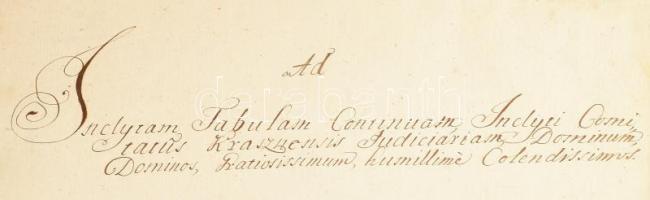 Ad
Inclytam Tabulam Continuam, Inclyti Comi,
tatus Krasznensis Judiciariam, Dominum,
Dominos, Gratiosissimum, humillimè Colendissimos.